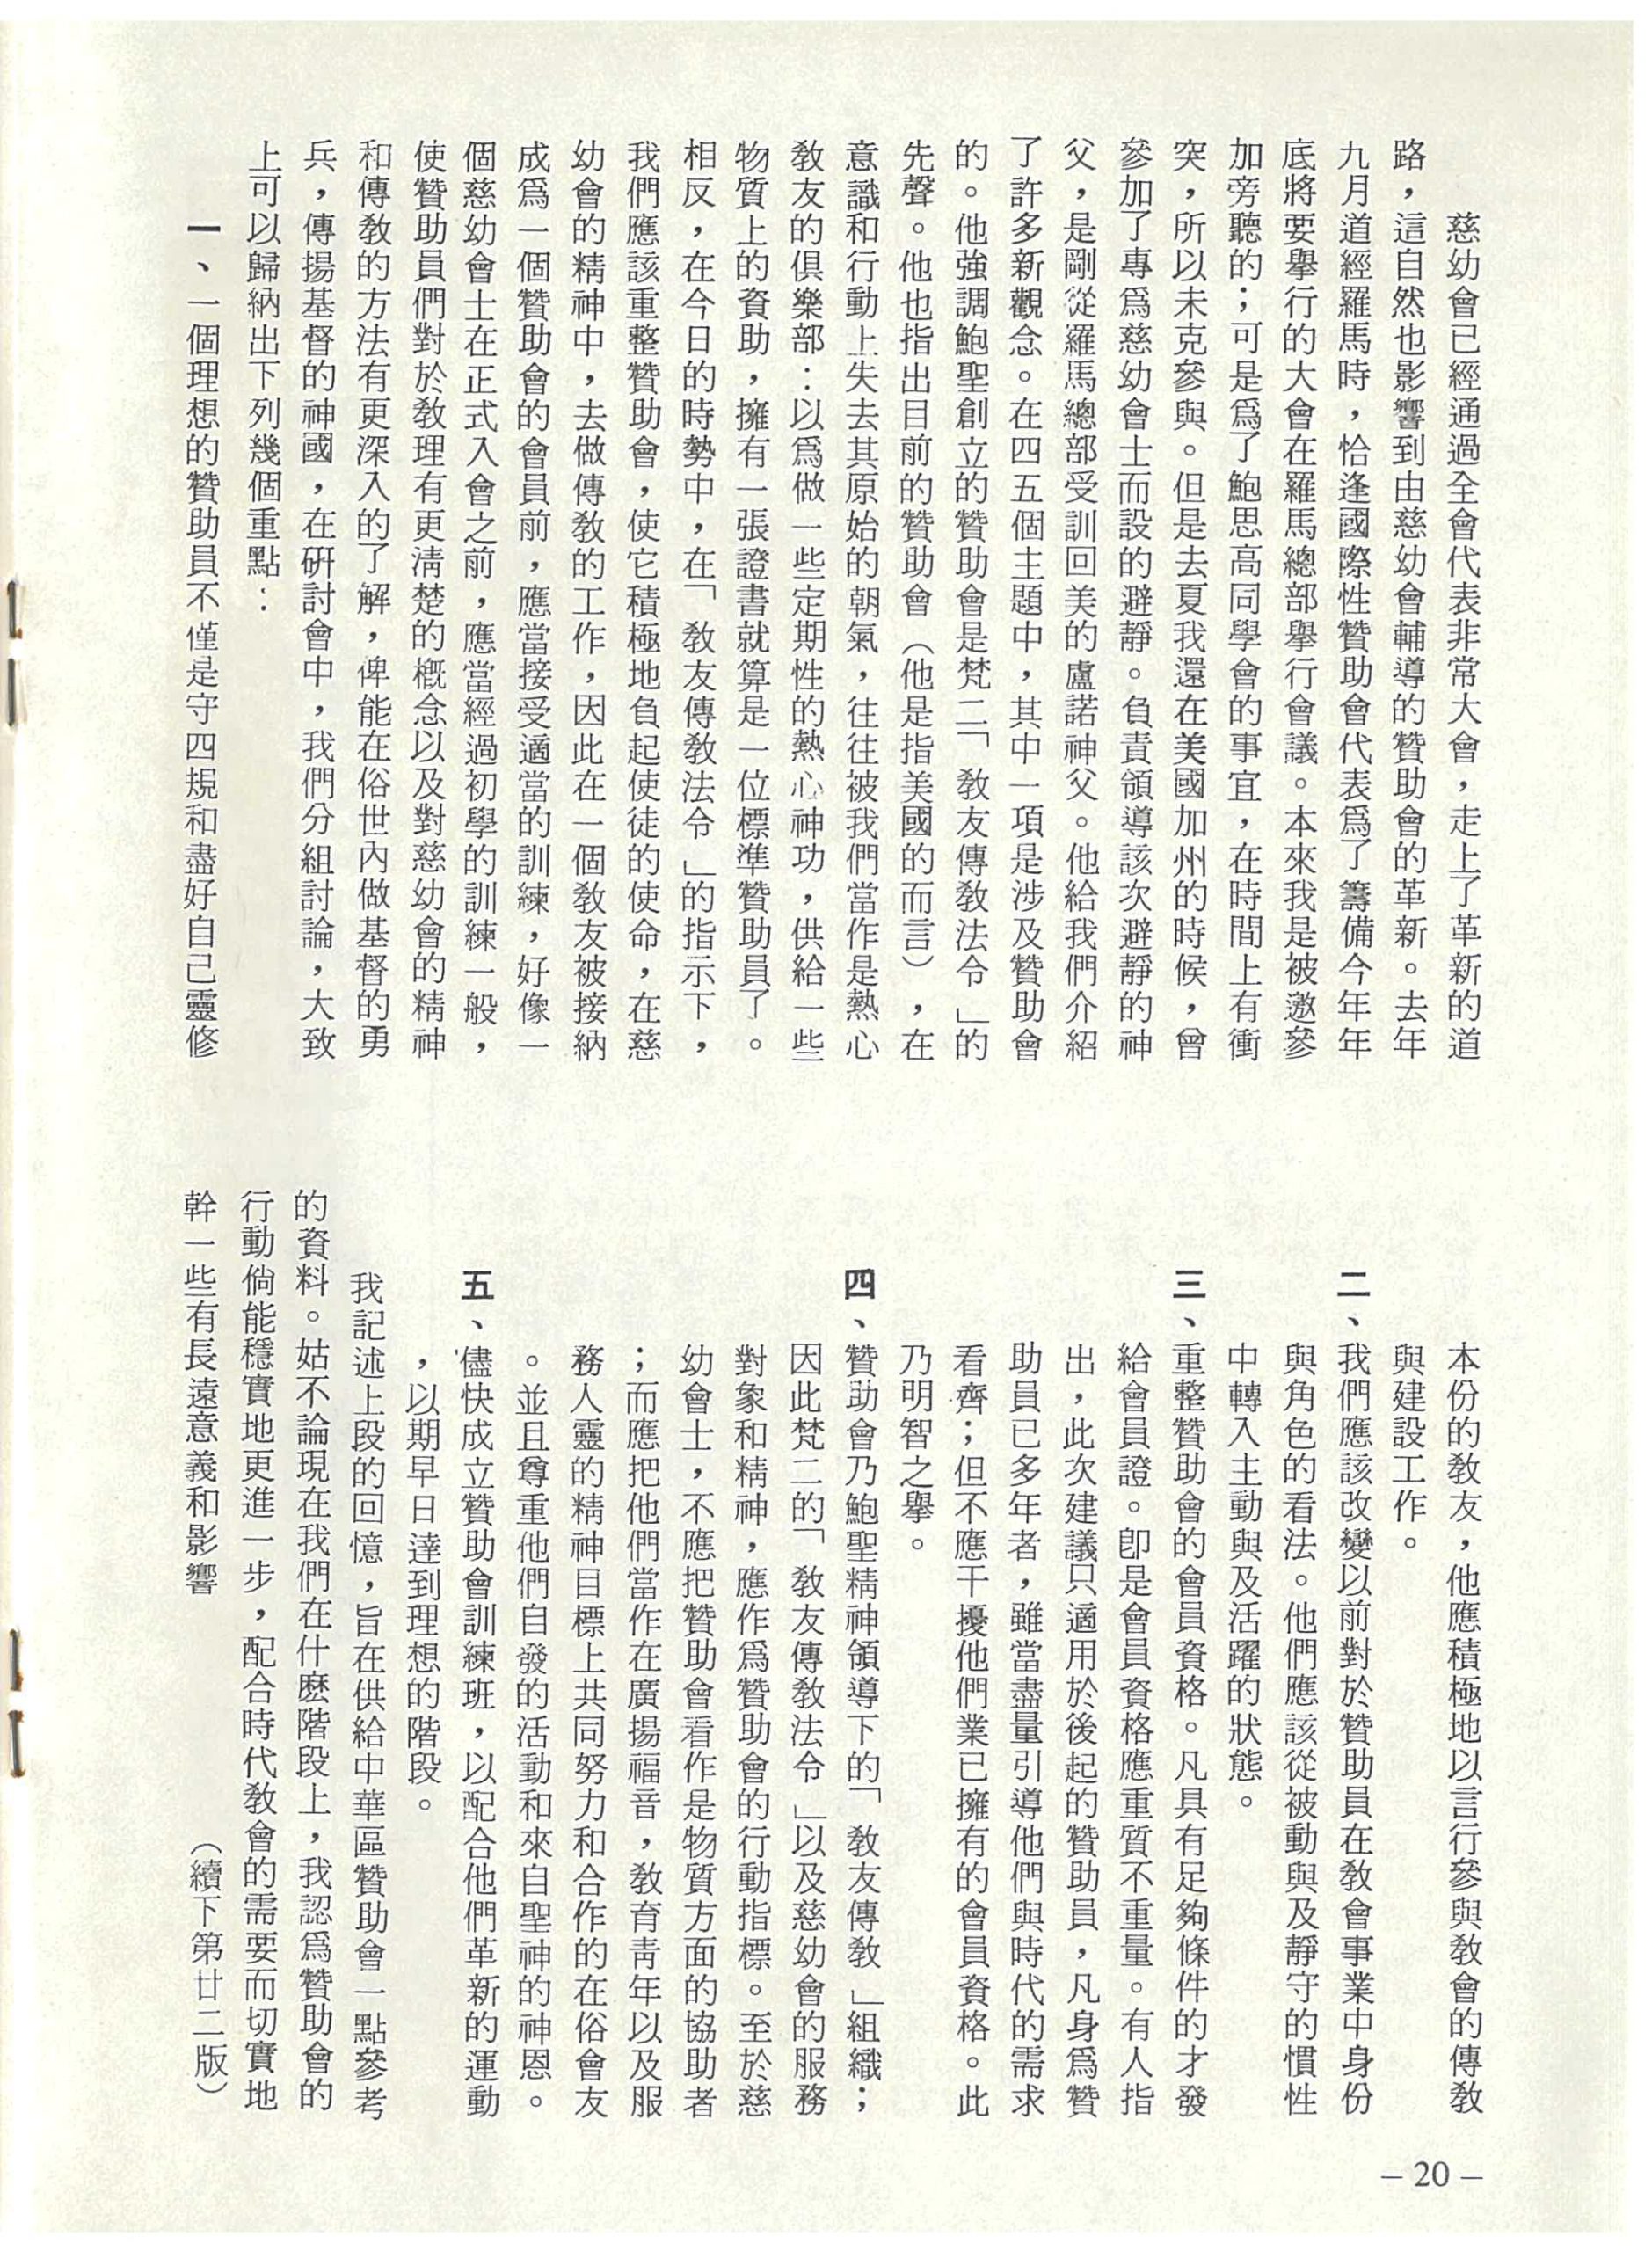 慈幼會已經通過全會代表非常大會，走上了革新的道
路，這自然也影響到由慈幼會輔導的贊助會的革新。去年
九月道經羅馬時，恰逢國際性贊助會代表爲了籌備今年年
底將要舉行的大會在羅馬總部舉行會議。本來我是被邀參
加旁聽的；可是爲了鮑思高同學會的事宜，在時間上有衝
突，所以未克參與。但是去夏我還在美國加州的時候，曾
參加了專爲慈幼會士而設的避靜。負責領導該次避靜的神
父，是剛從羅馬總部受訓回美的盧諾神父。他給我們介紹
了許多新觀念。在四五個主題中，其中一項是涉及贊助會
的。他強調鮑聖創立的贊助會是梵二「敎友傳敎法令」的
先聲。他也指出目前的贊助會（他是指美國的而言），在
意識和行動上失去其原始的朝氣，往往被我們當作是熱心
敎友的俱樂部：以爲做一些定期性的熱心神功，供給一些
物質上的資助，擁有一張證書就算是一位標準贊助員了。
相反，在今日的時勢中，在「敎友傳敎法令」的指示下，
我們應該重整贊助會，使它積極地負起使徒的使命，在慈
幼會的精神中，去做傳敎的工作，因此在一個敎友被接納
成爲一個贊助會的會員前，應當接受適當的訓練，好像一
個慈幼會士在正式入會之前，應當經過初學的訓練一般，
使贊助員們對於敎理有更淸楚的概念以及對慈幼會的精神
和傳敎的方法有更深入的了解，俾能在俗世內做基督的勇
兵，傳揚基督的神國，在硏討會中，我們分組討論，大致
上可以歸納出下列幾個重點：
一、一個理想的贊助員不僅是守四規和盡好自己靈修
本份的敎友，他應積極地以言行參與敎會的傳敎
與建設工作。
二、我們應該改變以前對於贊助員在敎會事業中身份
與角色的看法。他們應該從被動與及靜守的慣性
中轉入主動與及活躍的狀態。
三、重整贊助會的會員資格。凡具有足夠條件的才發
給會員證。卽是會員資格應重質不重量。有人指
出，此次建議只適用於後起的贊助員，凡身爲贊
助員已多年者，雖當盡量引導他們與時代的需求
看齊；但不應干擾他們業已擁有的會員資格。此
乃明智之舉。
四、贊助會乃鮑聖精神領導下的「敎友傳敎」組織；
因此梵二的「敎友傳敎法令」以及慈幼會的服務
對象和精神，應作爲贊助會的行動指標。至於慈
幼會士，不應把贊助會看作是物質方面的協助者
；而應把他們當作在廣揚福音，敎育靑年以及服
務人靈的精神目標上共同努力和合作的在俗會友
。並且尊重他們自發的活動和來自聖神的神恩。
五、儘快成立贊助會訓練班，以配合他們革新的運動
，以期早日達到理想的階段。
我記述上段的回憶，旨在供給中華區贊助會一點參考
的資料。姑不論現在我們在什麽階段上，我認爲贊助會的
行動倘能穩實地更進一步，配合時代敎會的需要而切實地
幹一些有長遠意義和影響
（續下第廿二版）
– 20 –